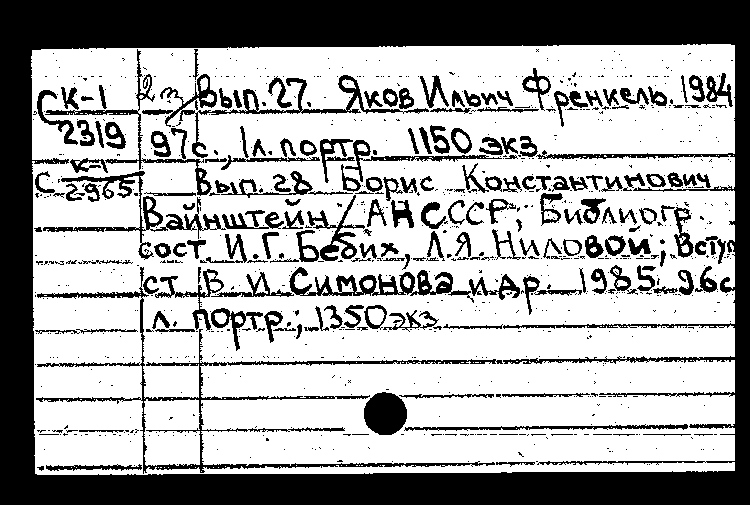 СК-1 2э Вып. 27. Яков Ильич Френкель. 1984
2319 97с., 1л. портр. 1150 экз.
С К-1 2-965 Вып. 28 Борис Константинович
Вайнштейн. АН СССР; Библиогр.
сост. И.Г. Бебих, Л.Я. Ниловой; Вступ
ст В. И. Симонова и др. 1985. 96с
1 л. портр.; 1350 экз